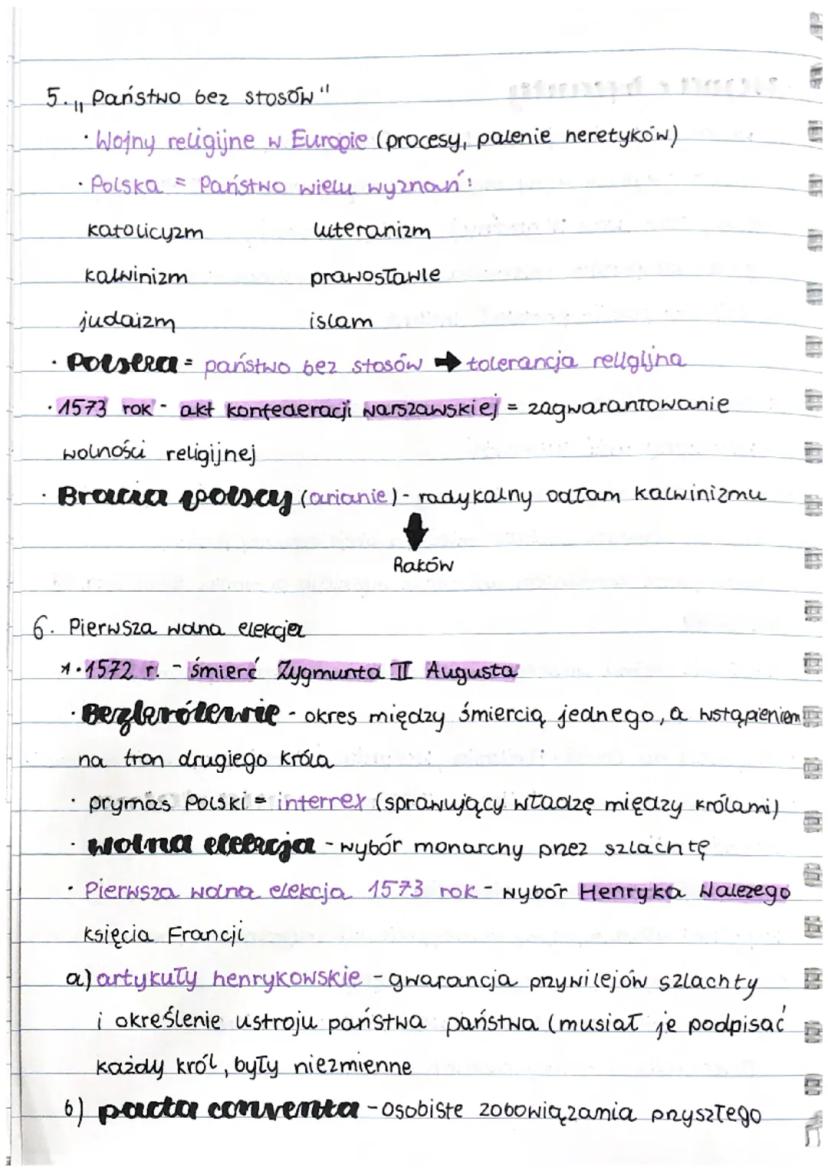 5. „Państwo bez stosów"
· Wojny religijne w Europie (procesy, palenie heretyków)
· Polska = Państwo wielu wyznań:
katolicyzm luteranizm
kalwinizm prawosławie
judaizm islam
· Polska = państwo bez stosów → tolerancja religijna
· 1573 rok - akt konfederacji warszawskiej = zagwarantowanie
wolności religijnej
· Bracia polscy (arianie) - radykalny odłam kalwinizmu
↓
Raków
6. Pierwsza wolna elekcja
* · 1572 r. - śmierć Zygmunta II Augusta
· Bezkrólewie - okres między śmiercią jednego, a wstąpieniem
na tron drugiego króla
· prymas Polski = interrex (sprawujący władzę między królami)
· wolna elekcja - wybór monarchy przez szlachtę
· Pierwsza wolna elekcja 1573 rok - wybór Henryka Walezego
księcia Francji
a) artykuły henrykowskie - gwarancja przywilejów szlachty
i określenie ustroju państwa państwa (musiał je podpisać
każdy król, były niezmienne
b) pacta conventa - osobiste zobowiązania przyszłego